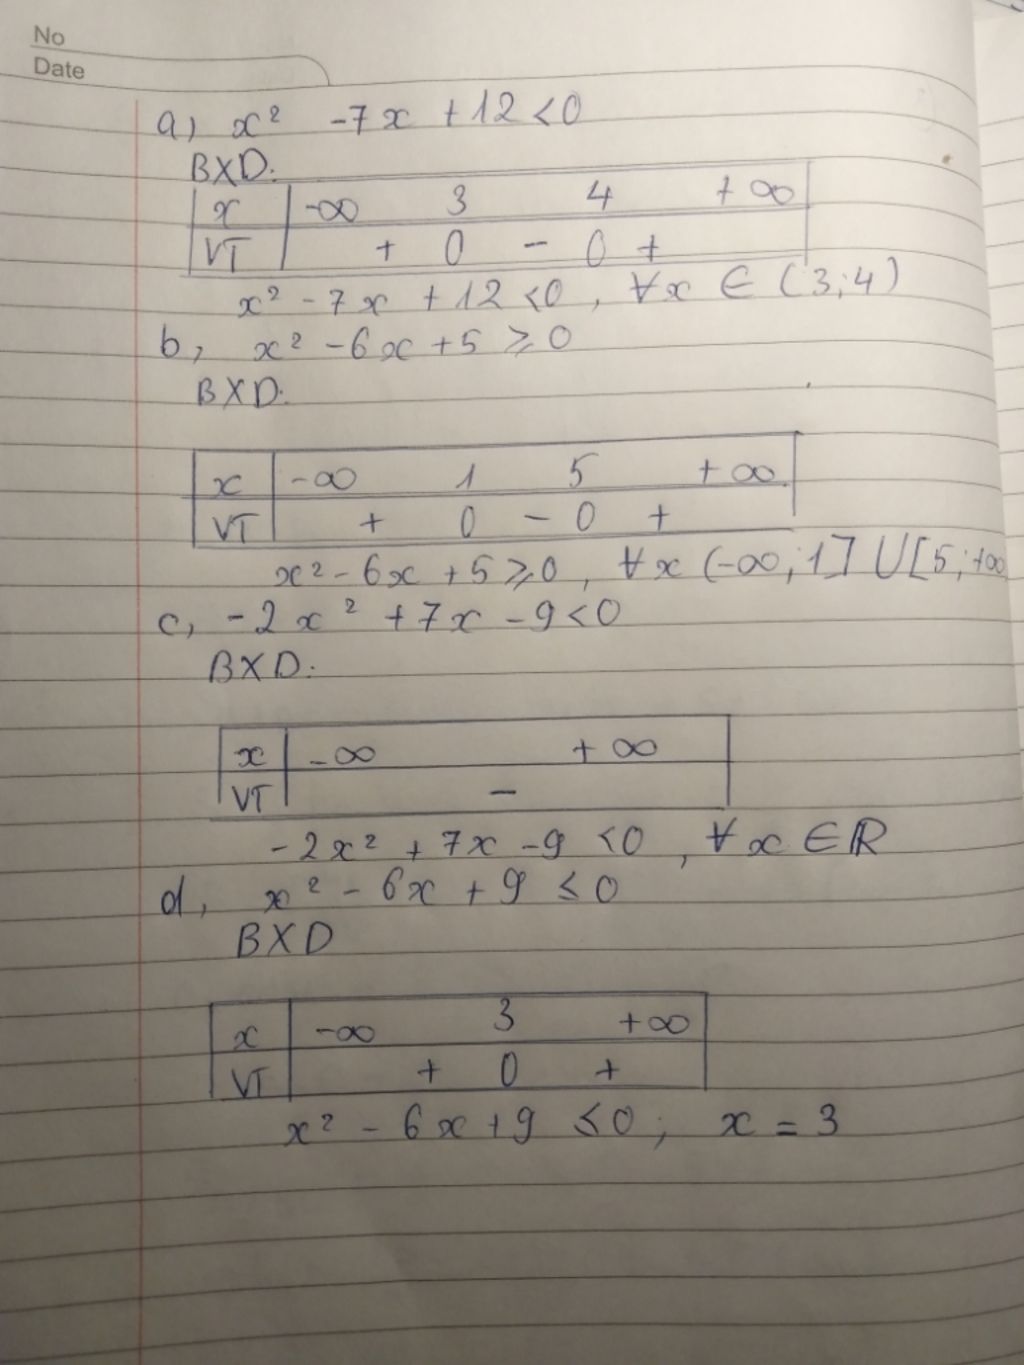 No
Date
a) x² -7x +12 <0
BXD:
x -∞ 3 4 +∞
VT + 0 - 0 +
x² - 7x + 12 <0 , ∀x ∈ (3;4)
b, x² -6x +5 ⩾ 0
BXD:
x -∞ 1 5 +∞
VT + 0 - 0 +
x² - 6x +5 ⩾0 , ∀x (-∞;1] U [5;+∞
c, -2x² +7x -9 <0
BXD:
x -∞ +∞
VT -
-2x² + 7x -9 <0 , ∀x ∈ ℝ
d, x² - 6x + 9 ≤ 0
BXD
x -∞ 3 +∞
VT + 0 +
x² - 6x +9 ≤0 ; x = 3